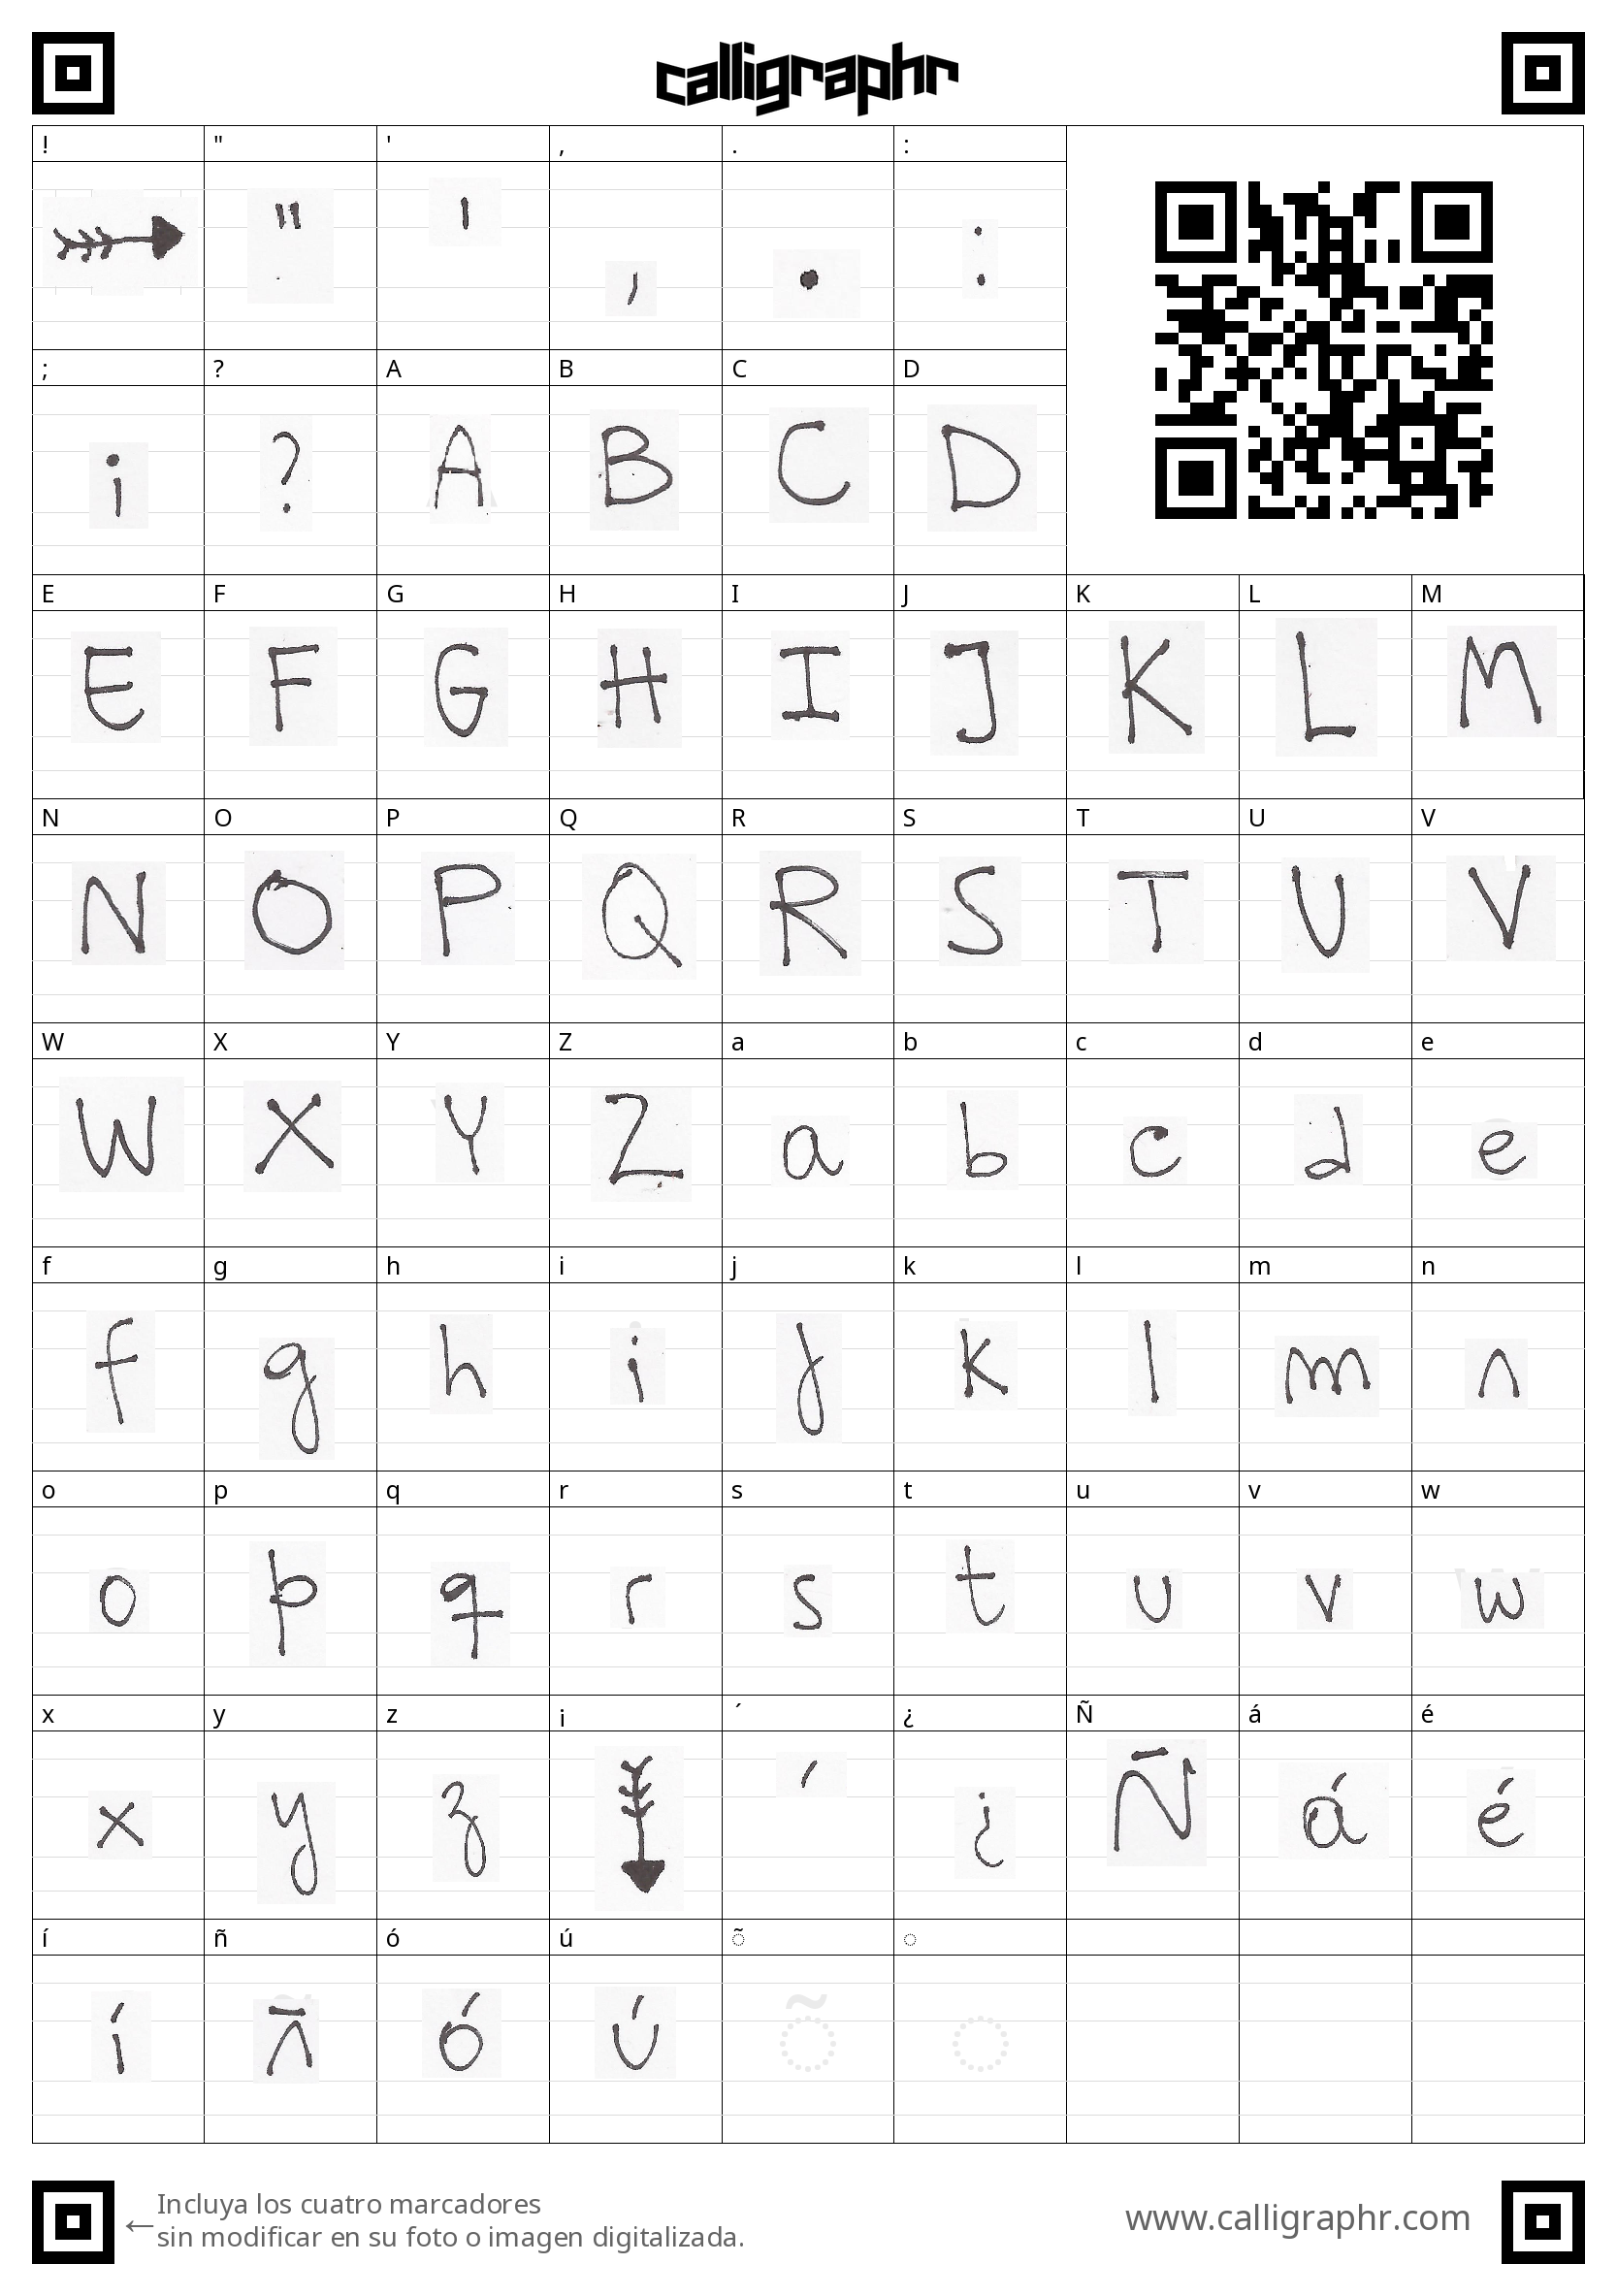 calligraphr
! " ' , . :
" ' , . :
; ? A B C D
i ? A B C D
E F G H I J K L M
E F G H I J K L M
N O P Q R S T U V
N O P Q R S T U V
W X Y Z a b c d e
W X Y Z a b c d e
f g h i j k l m n
f g h i j k l m n
o p q r s t u v w
o p q r s t u v w
x y z ¡ ´ ¿ Ñ á é
x y z ´ ¿ Ñ á é
í ñ ó ú õ ◌
í ñ ó ú
Incluya los cuatro marcadores
←sin modificar en su foto o imagen digitalizada.
www.calligraphr.com